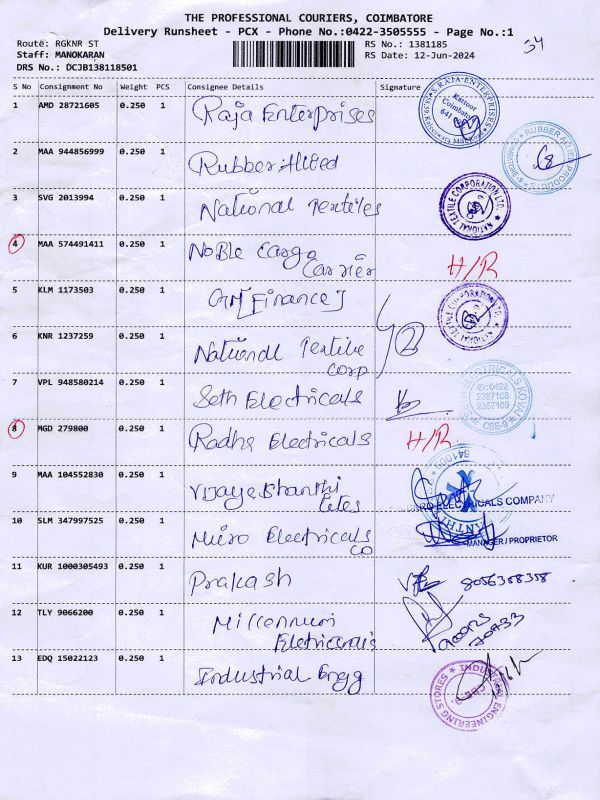 THE PROFESSIONAL COURIERS, COIMBATORE
Delivery Runsheet - PCX - Phone No.:0422-3505555 - Page No.:1
Route: RGKNR ST
RS No.: 1381185
34
Staff: MANOKARAN
RS Date: 12-Jun-2024
DRS No.: DCJB138118501
S No Consignment No Weight PCS Consignee Details Signature
1 AMD 28721605 0.250 1 Raja Enterprises
S.RAJA ENTERPRISES
Kattoor
Coimbatore
2 MAA 944856999 0.250 1 Rubber Allied
3 SVG 2013994 0.250 1 National Textiles
NATIONAL TEXTILE CORPORATION LTD.
4 MAA 574491411 0.250 1 Noble Cargo
Carrier
H/R
5 KLM 1173503 0.250 1 [Finance]
6 KNR 1237259 0.250 1 National Textile
Corp
2
7 VPL 948580214 0.250 1 Seth Electricals
0422
2387108
2387109
CBE-9
8 MGD 279800 0.250 1 Radha Electricals H/R
9 MAA 104552830 0.250 1 Vijaya Shanthi
641009
ELECTRICALS COMPANY
10 SLM 347997525 0.250 1 Micro Electricals
Co
MANAGER / PROPRIETOR
11 KUR 1000305493 0.250 1 Prakash
12 TLY 9066200 0.250 1 Millennium
13 EDQ 15022123 0.250 1 Industrial Engg
INDUSTRIAL ENGINEERING STORES
CBE-9